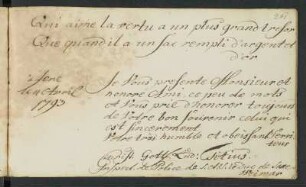 Qui aime la vertu a un plus grand tresor
Que quand il a un sac rempli d'argent et
d'or
Jene
le 4 Avril
1793
Je Vous presente Monsieur et
honoré Ami, ce peu de mots
et Vous prie d'honorer toujours
de Votre bon souvenir celui qui
est sincerement
Votre tres humble et obeissant Serviteur
Gottl. Lud. Titius
de